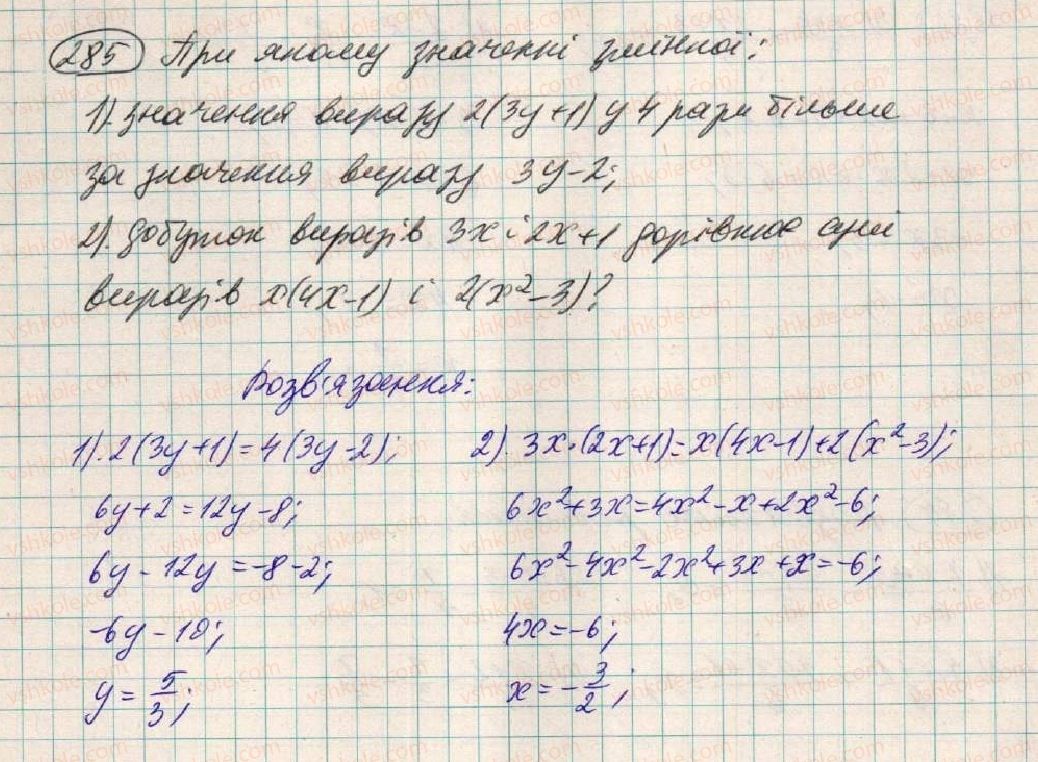 285 При якому значенні змінної:
1). значення виразу 2(3y+1) у 4 рази більше
за значення виразу 3y-2;
2). добуток виразів 3x і 2x+1 дорівнює сумі
виразів x(4x-1) і 2(x²-3)?
Розв'язання:
1). 2(3y+1)=4(3y-2);
6y+2=12y-8;
6y-12y=-8-2;
-6y-10;
y=5/3;
2). 3x·(2x+1)=x(4x-1)+2(x²-3);
6x²+3x=4x²-x+2x²-6;
6x²-4x²-2x²+3x+x=-6;
4x=-6;
x=-3/2;
vshkole.com